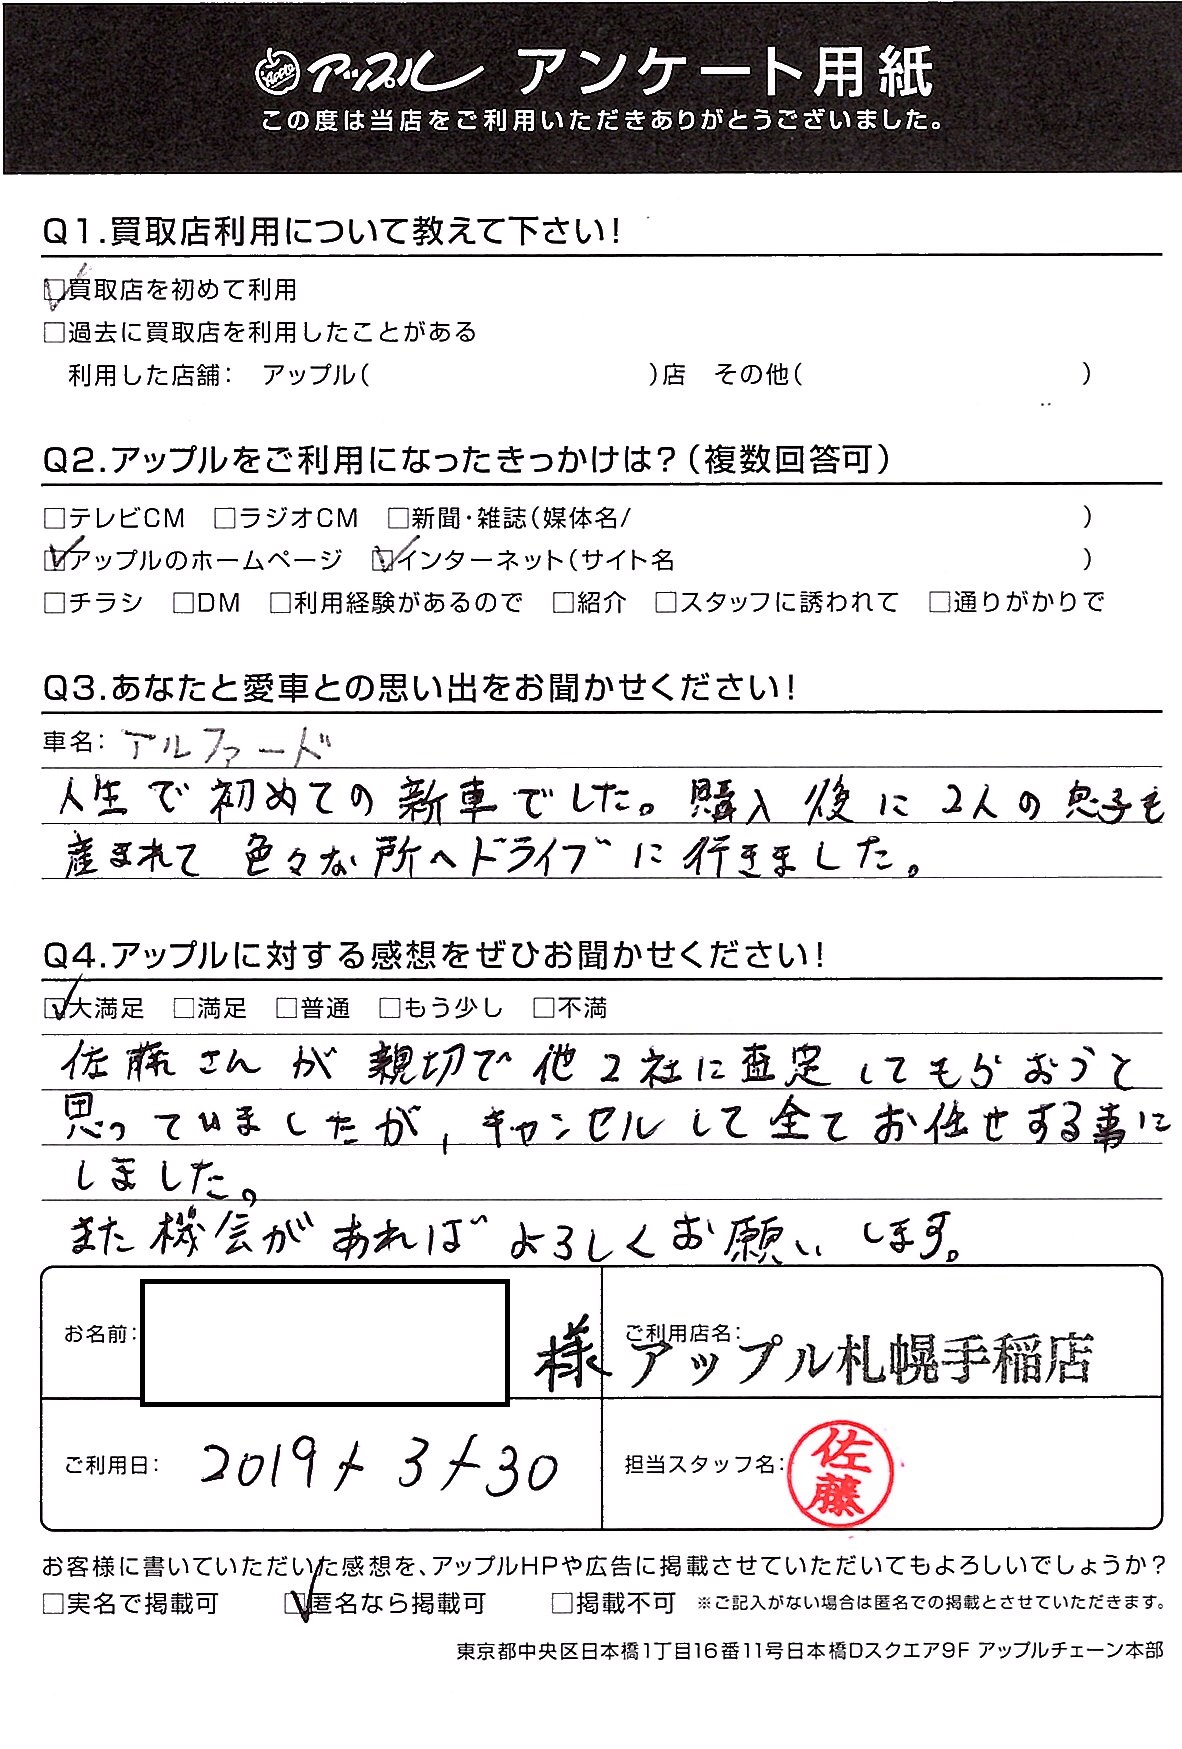 アップル アンケート用紙
この度は当店をご利用いただきありがとうございました。
Q1.買取店利用について教えて下さい!
☑買取店を初めて利用
□過去に買取店を利用したことがある
利用した店舗: アップル( )店 その他( )
Q2.アップルをご利用になったきっかけは?(複数回答可)
□テレビCM □ラジオCM □新聞・雑誌(媒体名/ )
☑アップルのホームページ ☑インターネット(サイト名 )
□チラシ □DM □利用経験があるので □紹介 □スタッフに誘われて □通りがかりで
Q3.あなたと愛車との思い出をお聞かせください!
車名: アルファード
人生で初めての新車でした。購入後に2人の息子も
産まれて色々な所へドライブに行きました。
Q4.アップルに対する感想をぜひお聞かせください!
☑大満足 □満足 □普通 □もう少し □不満
佐藤さんが親切で他2社に査定してもらおうと
思っていましたが、キャンセルして全てお任せする事に
しました。
また機会があればよろしくお願いします。
お名前: 様 ご利用店名: アップル札幌手稲店
ご利用日: 2019/3/30 担当スタッフ名: 佐藤
お客様に書いていただいた感想を、アップルHPや広告に掲載させていただいてもよろしいでしょうか?
□実名で掲載可 ☑匿名なら掲載可 □掲載不可 ※ご記入がない場合は匿名での掲載とさせていただきます。
東京都中央区日本橋1丁目16番11号日本橋Dスクエア9F アップルチェーン本部